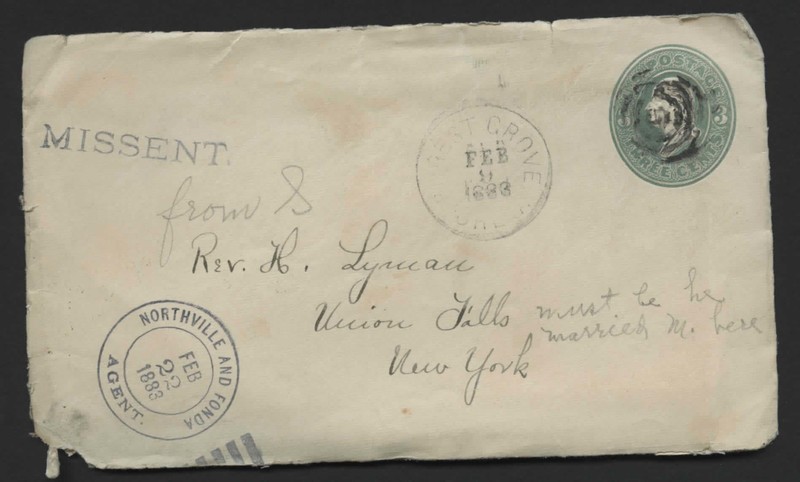 POSTAGE
3
THREE CENTS
MISSENT.
GROVE
FEB
9
1883
from S
Rev. H. Lyman
Union Falls
New York
must be he
married M. here
NORTHVILLE AND FONDA
FEB
22
1883
AGENT.